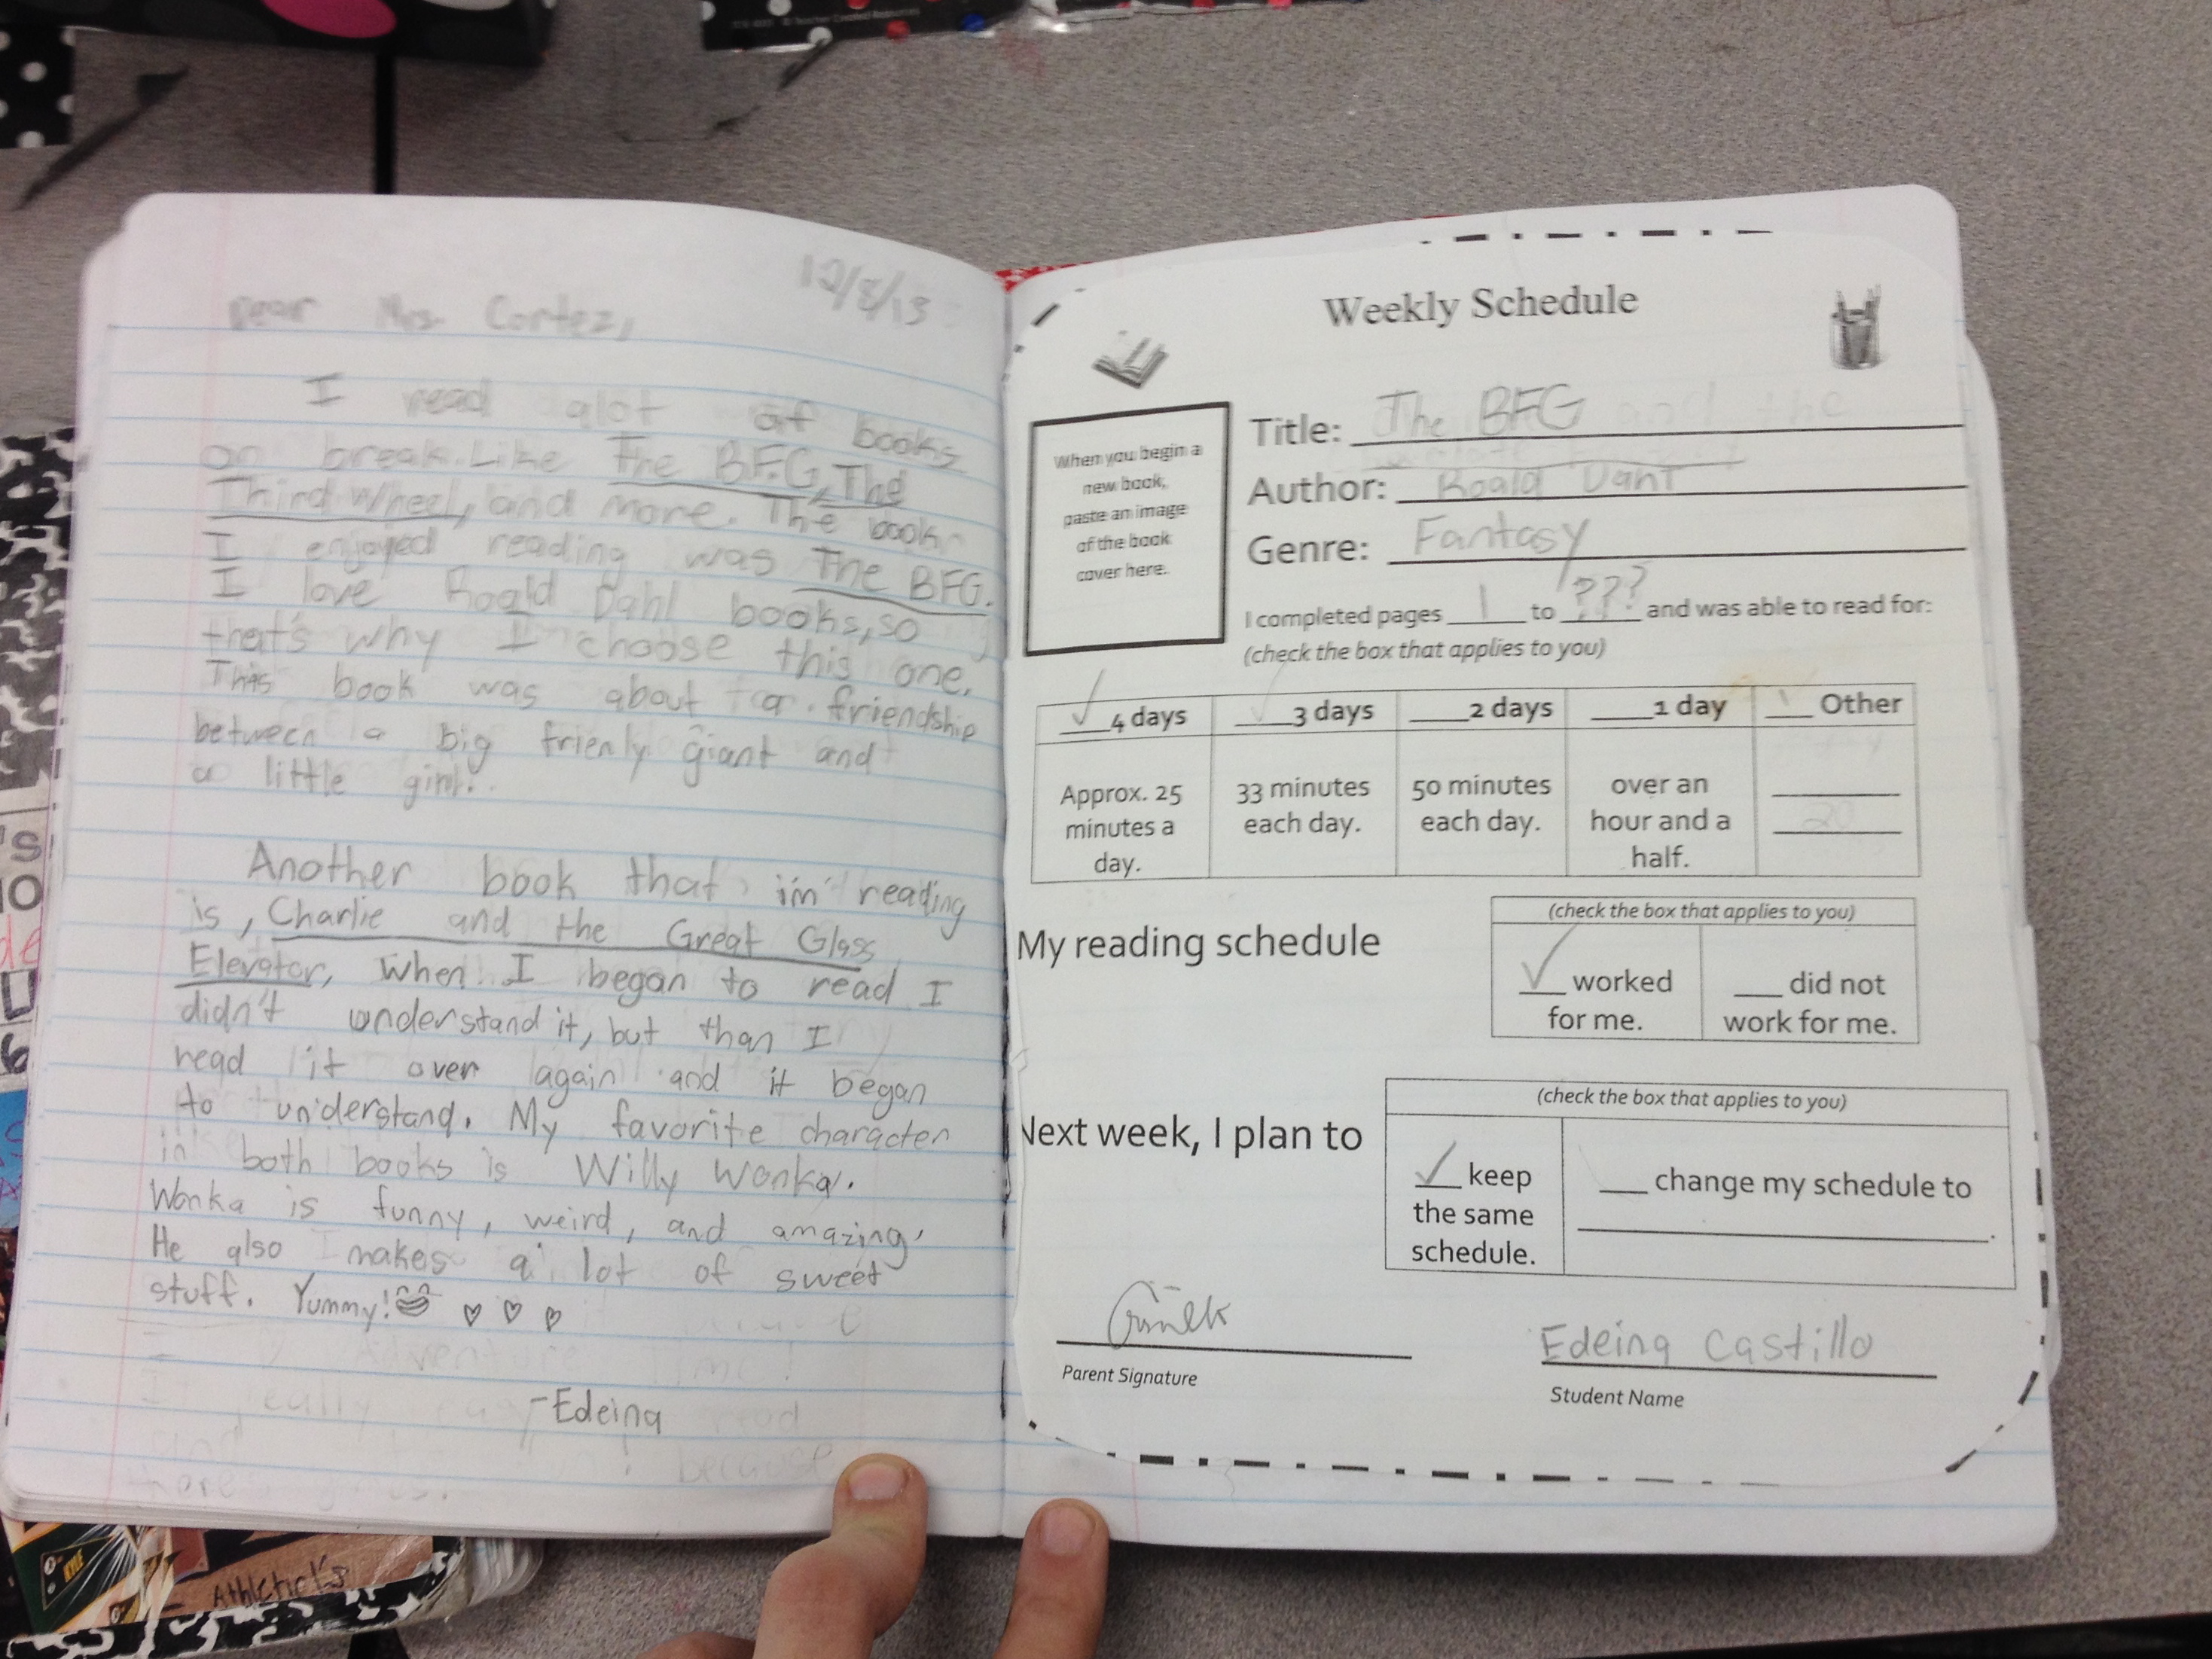 12/8/13
Dear Mrs. Cortez,
I read alot of books
on break. Like The BFG, The
Third Wheel, and more. The book
I enjoyed reading was The BFG.
I love Roald Dahl books, so
that's why I choose this one.
This book was about a friendship
between a big frienly giant and
a little girl.
Another book that im reading
is, Charlie and the Great Glass
Elevator, When I began to read I
didn't understand it, but than I
read it over again and it began
to understand. My favorite character
in both books is Willy Wonka.
Wonka is funny, weird, and amazing,
He also makes a lot of sweet
stuff. Yummy! ♡ ♡ ♡
-Edeing
Weekly Schedule
When you begin a
new book,
paste an image
of the book
cover here.
Title: The BFG
Author: Roald Dahl
Genre: Fantasy
I completed pages 1 to ??? and was able to read for:
(check the box that applies to you)
✓ 4 days ___3 days ___2 days ___1 day ___ Other
Approx. 25 33 minutes 50 minutes over an
minutes a each day. each day. hour and a
day. half.
My reading schedule
(check the box that applies to you)
✓ worked ___ did not
for me. work for me.
Next week, I plan to
(check the box that applies to you)
✓ keep ___ change my schedule to
the same
schedule.
Edeing Castillo
Parent Signature
Student Name
Athletic's